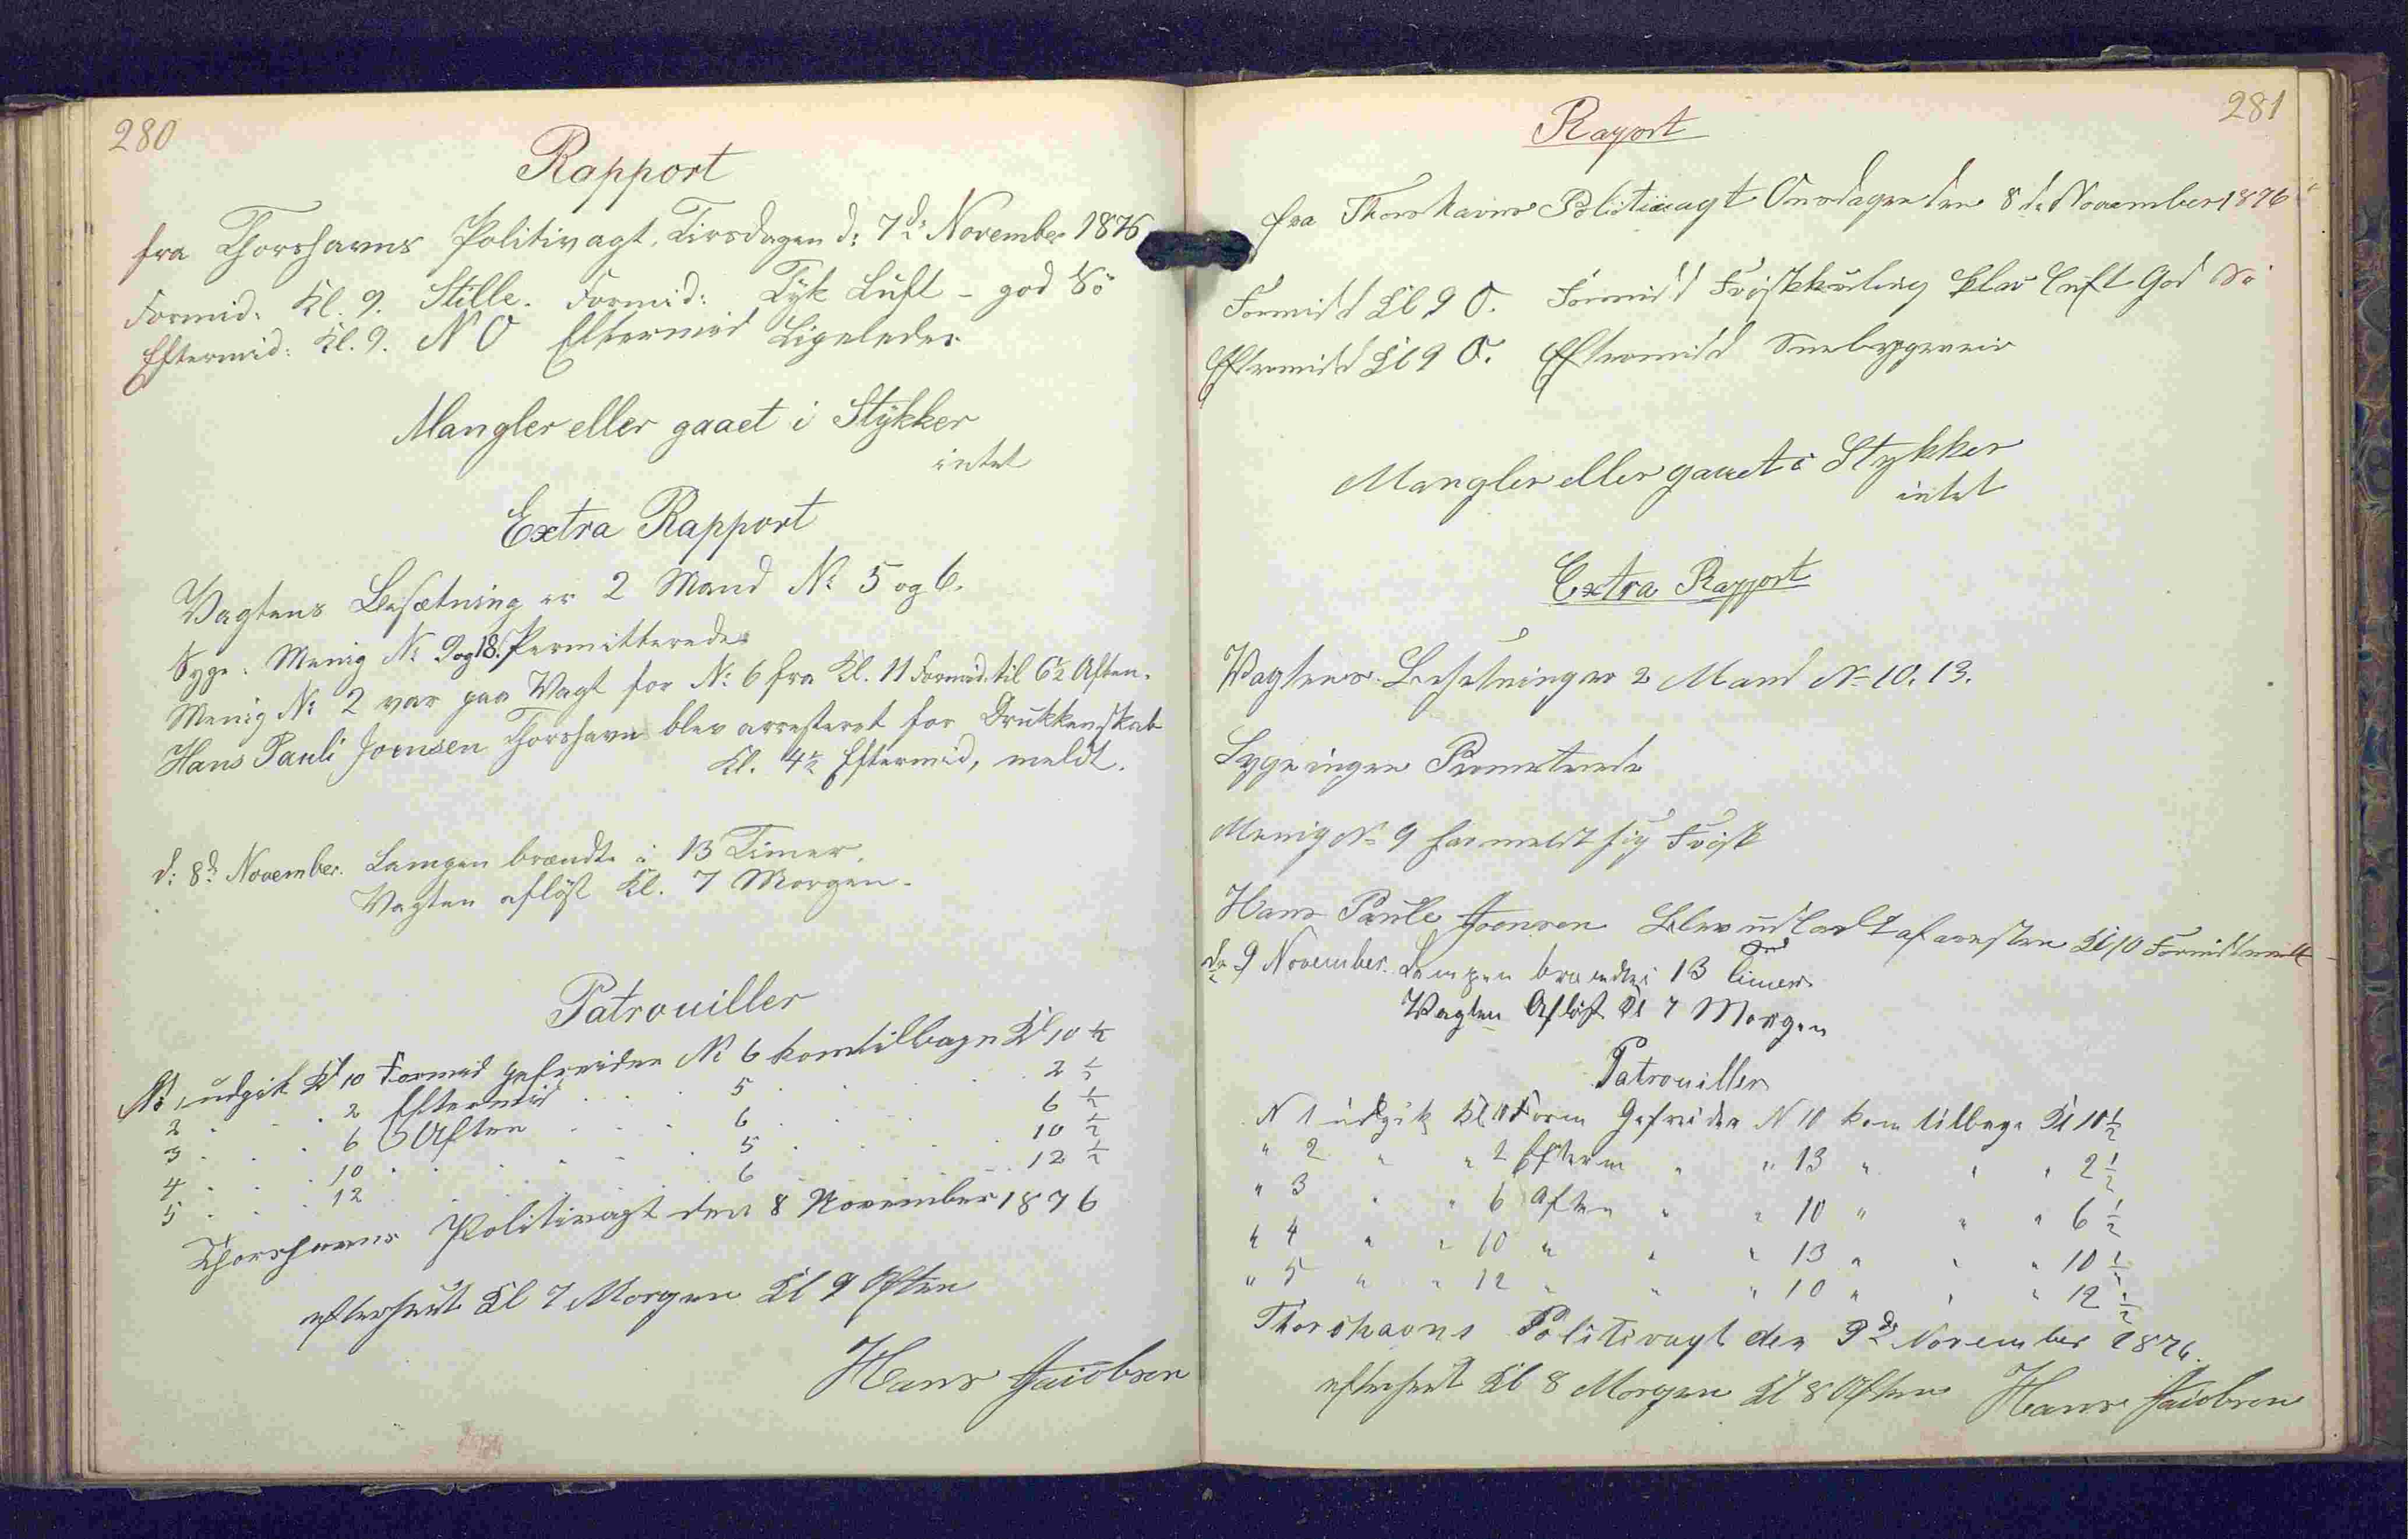 280
Rapport
fra Thorshavns Politivagt, Tirsdagen d: 7de November 1876
Formid: Kl. 9. Stille. Formid: Tyk Luft - god Sö
Eftermid: Kl. 9. N O Eftermid Ligeledes
Mangler eller gaaet i Stÿkker
intet
Extra Rapport
Vagtens Besætning er 2 Mand No 5 og 6.
Syge: Menig No 9 og 18. Permitterede
Menig No 2 var paa Vagt for No 6 fra Kl. 11 Formid. til 6½ Aften.
Hans Pauli Joensen Thorshavn blev arresteret for Drukkenskab
Kl. 4½ Eftermid, meldt.
d: 8de November. Lampen brændte i 13 Timer.
Vagten aflöst Kl. 7 Morgen.
Patrouiller
No 1 udgik Kl 10 Formid Gefreider No 6 kom tilbage Kl 10 ½
2 . . . 2 Eftermid . . . 5 . . . 2 ½
3 . . . 6 Aften . . . 6 . . . 6 ½
4 . . . 10 . . . 5 . . . 10 ½
5 . . . 12 . . . 6 . . . 12 ½
Thorshavns Politivagt den 8 November 1876
efterseet Kl 7 Morgen Kl 9 Aften
Hans Jacobsen
281
Raport
fra Thorshavns Politivagt Onsdagen den 8 de November 1876
Formidd Kl 9 O. Formidd Friskkuling klar Luft God Sö
Eftermidd Kl 9 O. Eftermidd Sneebygeveir
Mangler eller gaaet i Stykker
intet
Extra Rapport
Vagtens Besetning er 2 Mand No 10. 13.
Syge ingen Permeterede
Menig No 9 har meldt sig Frisk
Hans Paule Joensen Blev udladt af aresten Kl 10 Formidd meldt
de 9 November. Lampen brændte i 13 timer
Vagten Aflöst Kl 7 Morgen
Patrouiller
N 1 udgik Kl 10 Form Gefreider N 10 kom tilbage Kl 10 ½
" 2 " " 2 Efterm " " 13 " " " 2 ½
" 3 " " 6 Aften " " 10 " " " 6 ½
" 4 " " 10 " " " 13 " " " 10 ½
" 5 " " 12 " " " 10 " " " 12 ½
Thorshavns Politivagt den 9de November 1876.
efterseet Kl 8 Morgen Kl 8 Aften Hans Jacobsen